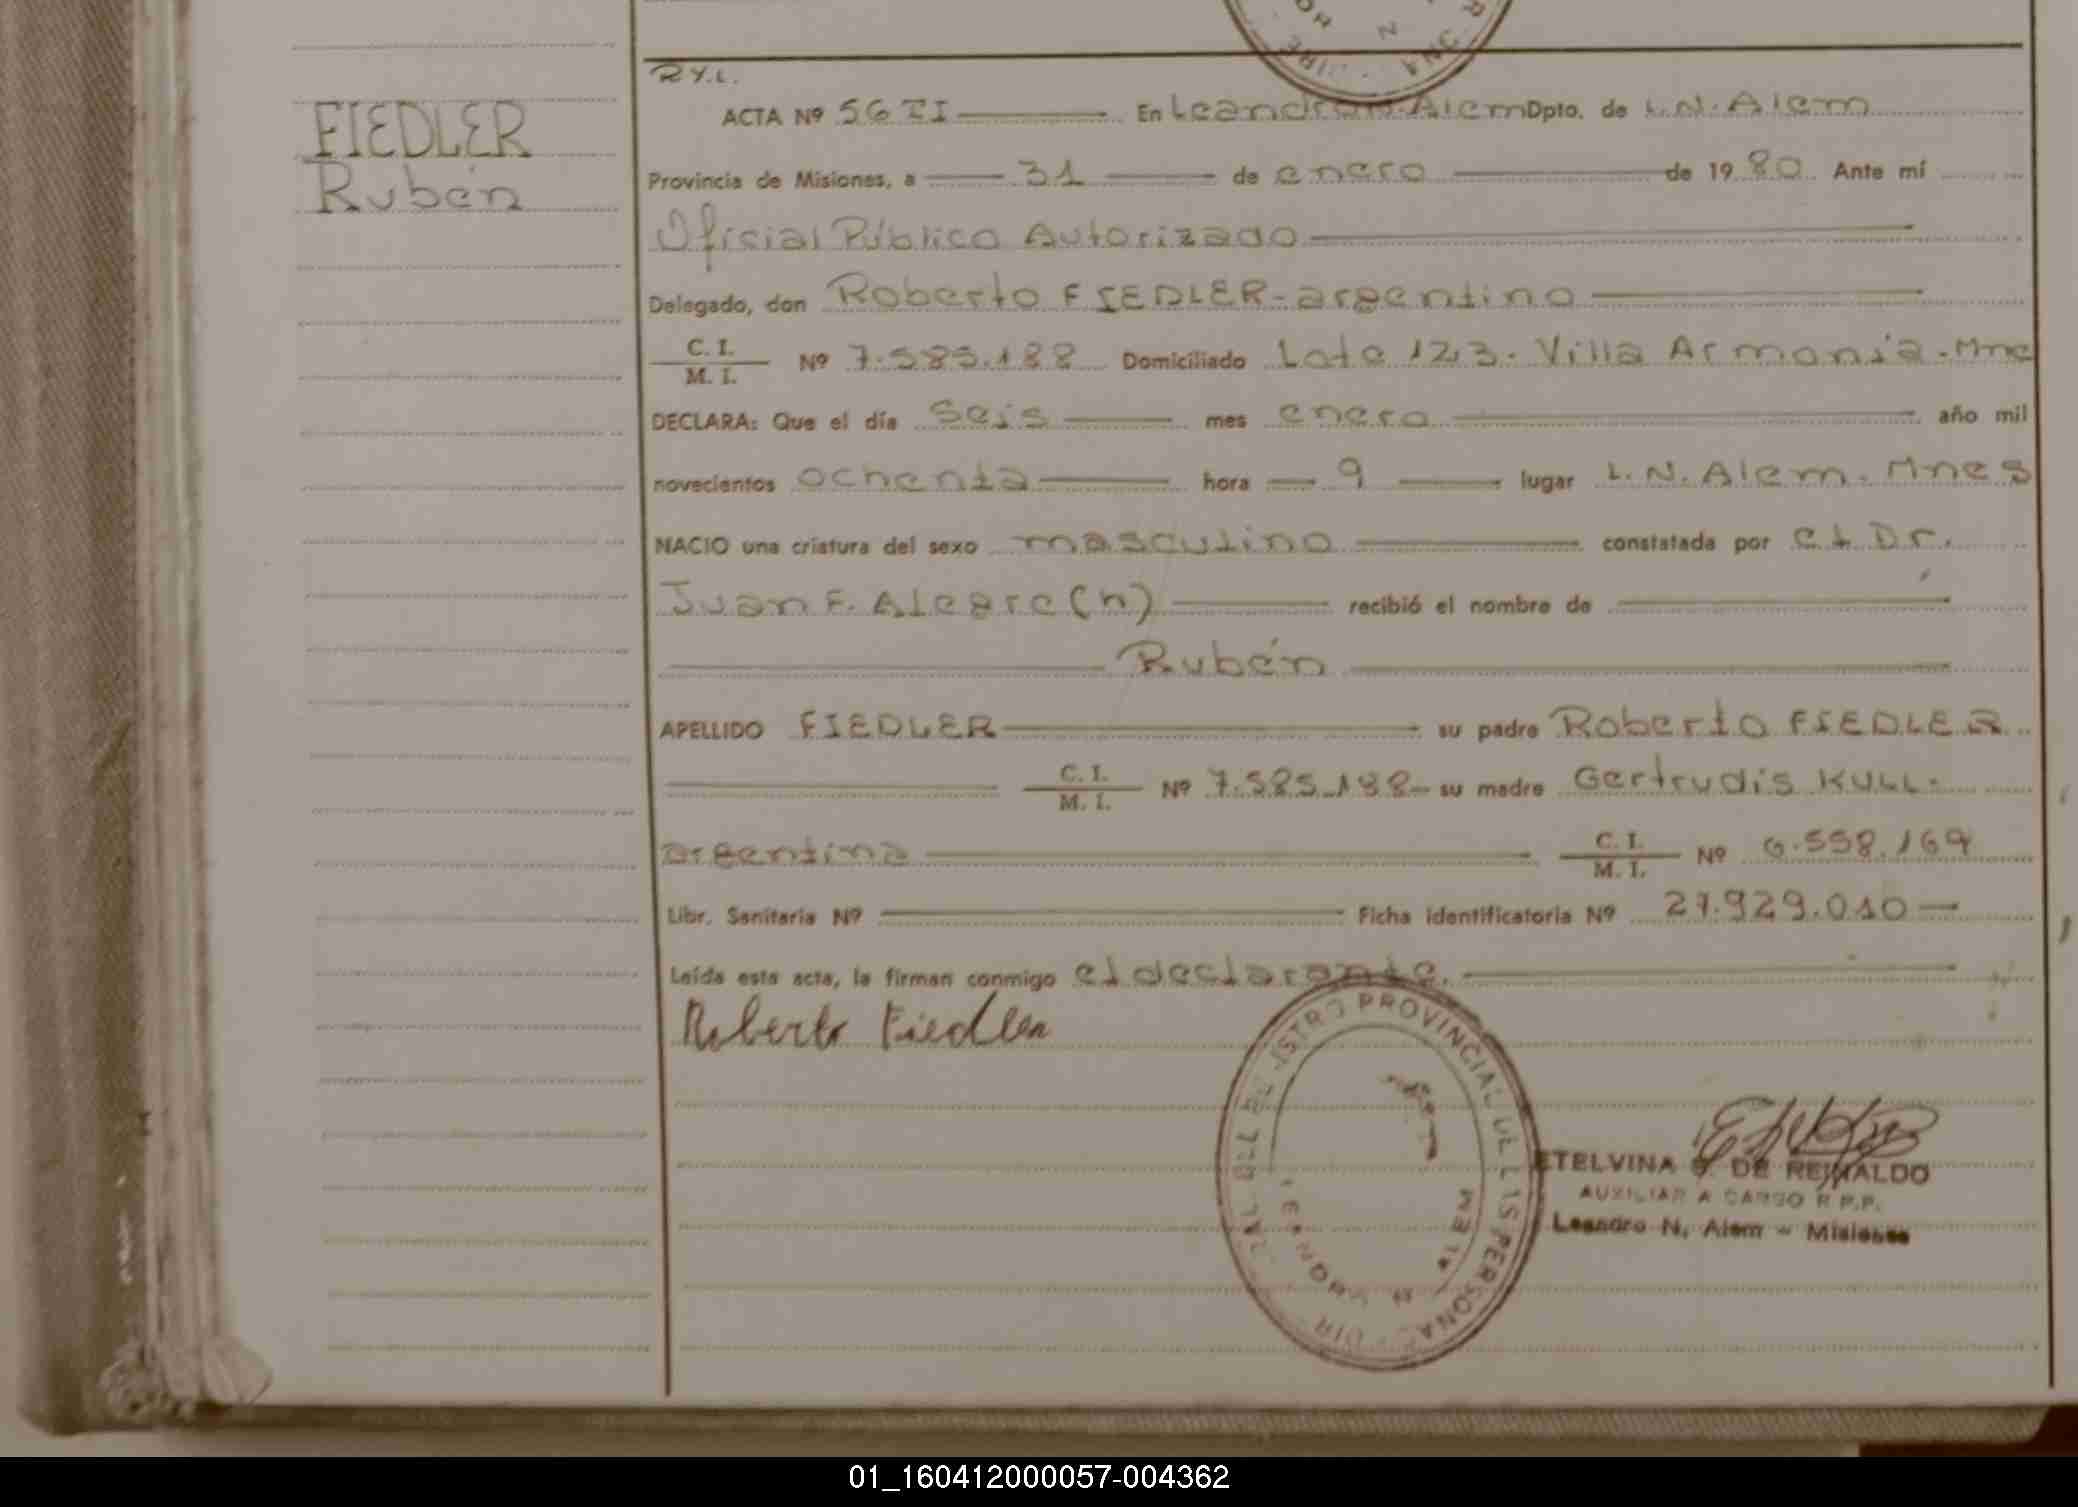 FIEDLER
Rubén
R.Y.L.
ACTA Nº 56 TI En Leandro N. Alem Dpto. de L.N. Alem
Provincia de Misiones, a 31 de enero de 1980 Ante mí
Oficial Público Autorizado
Delegado, don Roberto FIEDLER - argentino
C. I. / M. I. Nº 7.585.188 Domiciliado Lote 123. Villa Armonía - Mnes
DECLARA: Que el día seis mes enero año mil
novecientos ochenta hora 9 lugar L. N. Alem. Mnes
NACIO una criatura del sexo masculino constatada por el Dr.
Juan F. Alegre (h) recibió el nombre de
Rubén
APELLIDO FIEDLER su padre Roberto FIEDLER
C. I. / M. I. Nº 7.585.188 su madre Gertrudis KULL.
argentina C. I. / M. I. Nº 6.558.169
Libr. Sanitaria Nº Ficha identificatoria Nº 27.929.010
Leída esta acta, la firman conmigo el declarante.
Roberto Fiedler
REGISTRO PROVINCIAL DE LAS PERSONAS
ALEM
ETELVINA DE REINALDO
AUXILIAR A CARGO R.P.P.
Leandro N. Alem - Misiones
01_160412000057-004362